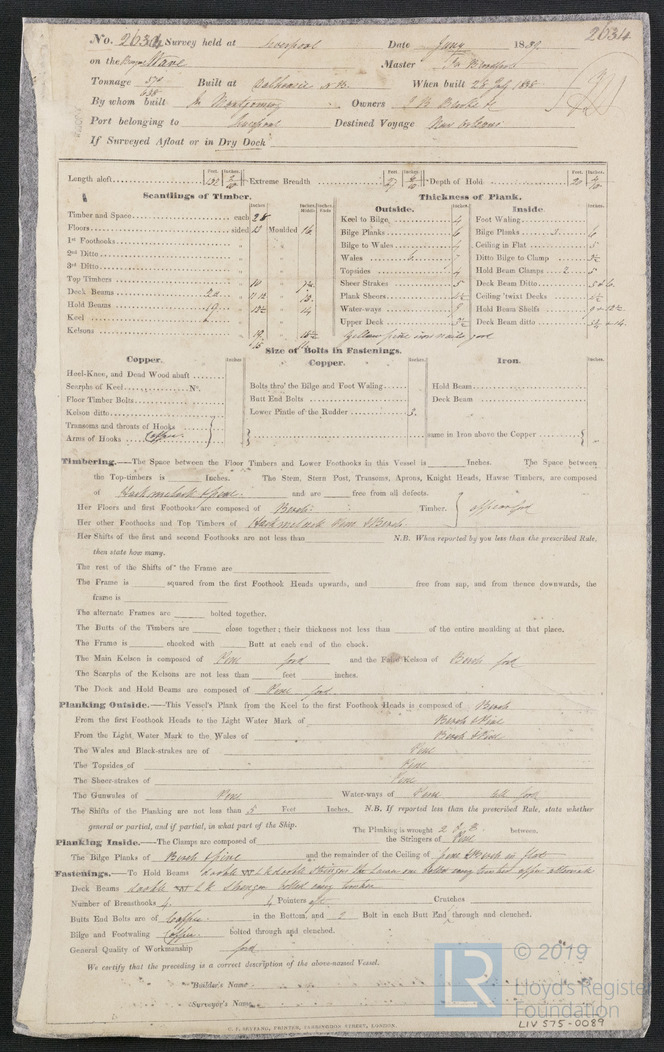 No. 2634 Survey held at Liverpool Date Jany 1839 2634
on the Barque Wave Master
Tonnage 570 Built at Dalhousie N.B. When built 28 July 1838
638
By whom built Jn Montgomery Owners
Port belonging to Liverpool Destined Voyage New Orleans
If Surveyed Afloat or in Dry Dock
Length aloft Feet. Inches. Extreme Breadth Feet. Inches. Depth of Hold Feet. Inches.
Scantlings of Timber. Thickness of Plank.
Outside. Inside
Timber and Space each 28 Keel to Bilge 4 Foot Waling
Floors sided 13 Moulded 16 Bilge Planks 6 Bilge Planks 3 6
1st Foothooks Bilge to Wales 4 Ceiling in Flat 5
2nd Ditto Wales 6 7 Ditto Bilge to Clamp 3½
3rd Ditto Topsides 4 Hold Beam Clamps 2 5
Top Timbers Sheer Strakes 5 Deck Beam Ditto 5 & 6
Deck Beams 22 Plank Sheers Ceiling 'twixt Decks
Hold Beams 19 Water-ways Hold Beam Shelfs
Keel Upper Deck 3½ Deck Beam ditto
Kelsons Yellow pine iron nails good
Size of Bolts in Fastenings.
Copper. Inches Copper. Inches Iron. Inches
Heel-Knee, and Dead Wood abaft
Scarphs of Keel No. Bolts thro' the Bilge and Foot Waling Hold Beam
Floor Timber Bolts Butt End Bolts Deck Beam
Kelson ditto Lower Pintle of the Rudder 3.
Transoms and throats of Hooks
Arms of Hooks Copper same in Iron above the Copper
Timbering.—The Space between the Floor Timbers and Lower Foothooks in this Vessel is Inches. The Space between
the Top-timbers is Inches. The Stem, Stern Post, Transoms, Aprons, Knight Heads, Hawse Timbers, are composed
of Hackmatack & pine and are free from all defects.
Her Floors and first Foothooks are composed of Birch Timber.
Her other Foothooks and Top Timbers of Hackmatack Pine & Birch
Her Shifts of the first and second Foothooks are not less than N.B. When reported by you less than the prescribed Rule,
then state how many.
The rest of the Shifts of the Frame are
The Frame is squared from the first Foothook Heads upwards, and free from sap, and from thence downwards, the
frame is
The alternate Frames are bolted together.
The Butts of the Timbers are close together; their thickness not less than of the entire moulding at that place.
The Frame is chocked with Butt at each end of the chock.
The Main Kelson is composed of Pine good and the False Kelson of Birch good
The Scarphs of the Kelsons are not less than feet inches.
The Deck and Hold Beams are composed of Pine good
Planking Outside.—This Vessel's Plank from the Keel to the first Foothook Heads is composed of Birch
From the first Foothook Heads to the Light Water Mark of Birch & Pine
From the Light Water Mark to the Wales of Birch & Pine
The Wales and Black-strakes are of Pine
The Topsides of Pine
The Sheer-strakes of Pine
The Gunwales of Pine Water-ways of Pine all good
The Shifts of the Planking are not less than 5 Feet Inches. N.B. If reported less than the prescribed Rule, state whether
general or partial, and if partial, in what part of the Ship. The Planking is wrought 2 & 3 between.
Planking Inside.—The Clamps are composed of the Stringers of Pine
The Bilge Planks of Birch & pine and the remainder of the Ceiling of pine & Birch in flat
Fastenings.—To Hold Beams double
Deck Beams double bolted every timber
Number of Breasthooks 4 4 Pointers aft Crutches
Butts End Bolts are of Copper in the Bottom, and 2 Bolt in each Butt End through and clenched.
Bilge and Footwaling Copper bolted through and clenched.
General Quality of Workmanship good
We certify that the preceding is a correct description of the above-named Vessel.
Builder's Name
Surveyor's Name
C. F. SEYFANG, PRINTER, FARRINGDON STREET, LONDON.
LR © 2019
Lloyd's Register
Foundation
LIV 575-0089